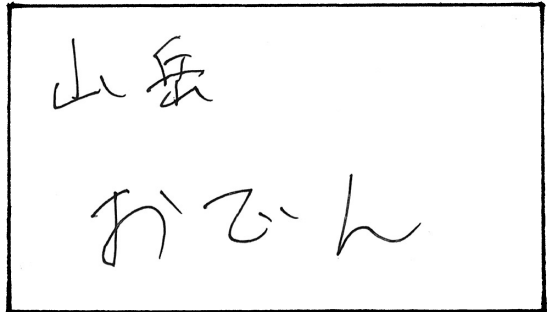 山岳
おでん